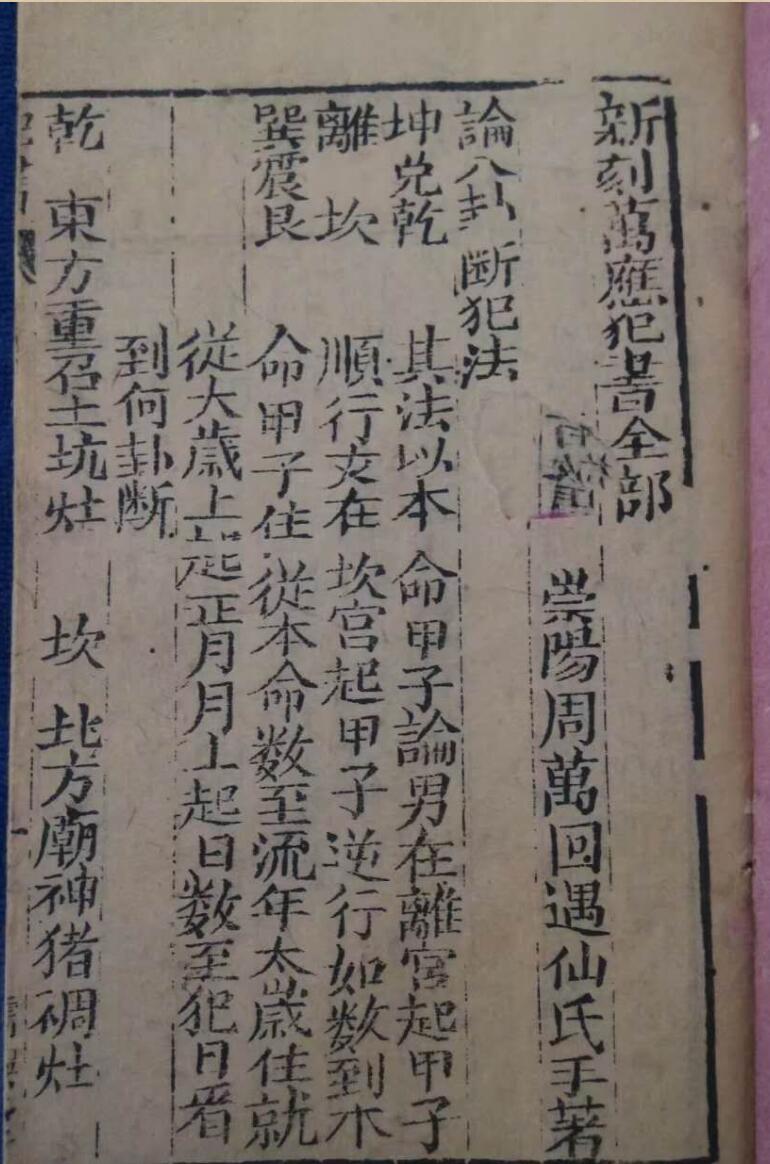 新刻萬應犯書全部
崇陽周萬回遇仙氏手著
論八卦斷犯法
坤兌乾 其法以本命甲子論男在離宮起甲子
離坎 順行女在坎宮起甲子逆行如数到本
巽震艮 命甲子住從本命数至流年太歲住就
從大歲上起正月月上起日数至犯日看
到何卦断
乾 東方重召土坑灶 坎 北方廟神猪磵灶